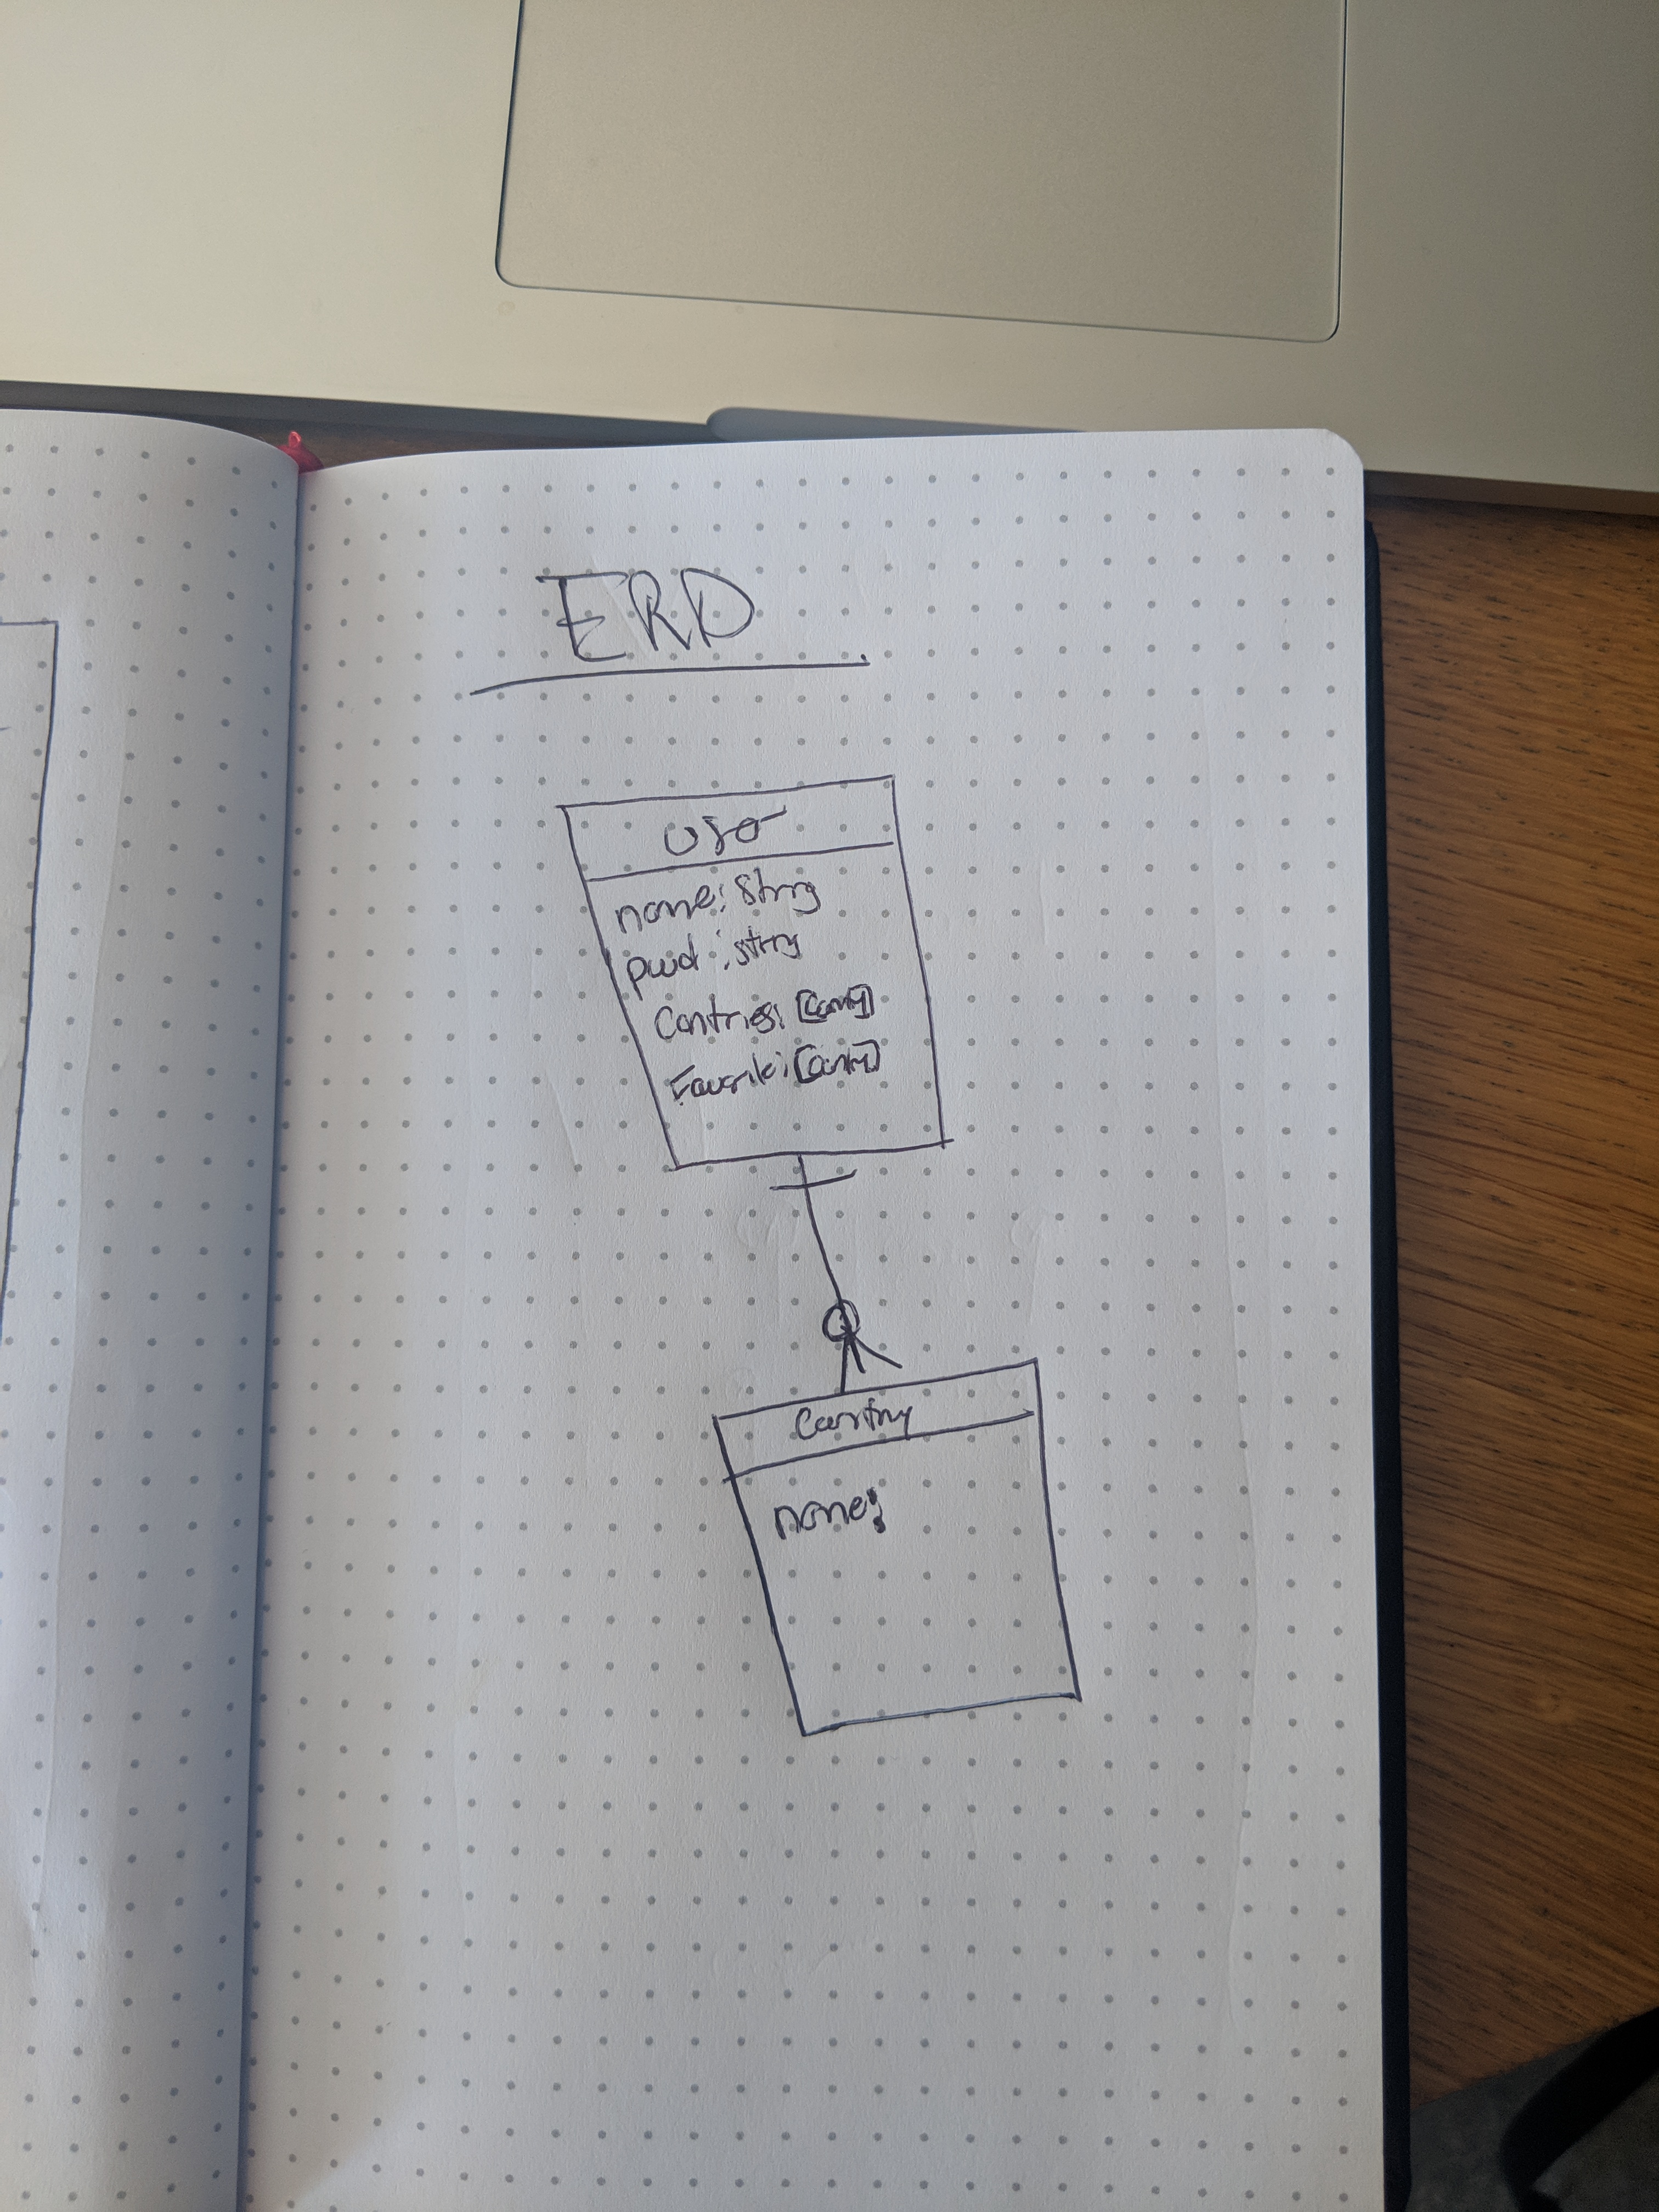 ERD
User
name: String
pwd: string
Contries: [Contry]
Favorite: [Contry]
Contry
name: